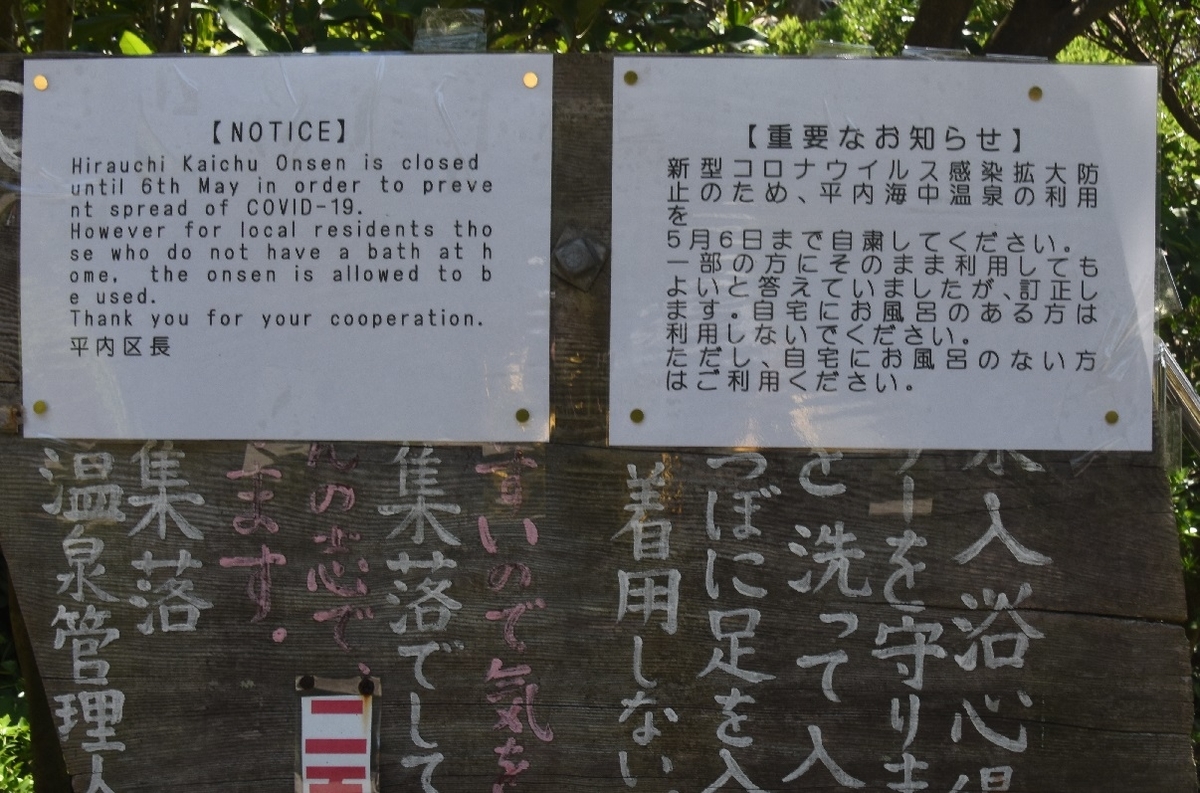 【NOTICE】
Hirauchi Kaichu Onsen is closed
until 6th May in order to preve
nt spread of COVID-19.
However for local residents tho
se who do not have a bath at h
ome, the onsen is allowed to b
e used.
Thank you for your cooperation.
平内区長
【重要なお知らせ】
新型コロナウイルス感染拡大防
止のため、平内海中温泉の利用
を
5月6日まで自粛してください。
一部の方にそのまま利用しても
よいと答えていましたが、訂正し
ます。自宅にお風呂のある方は
利用しないでください。
ただし、自宅にお風呂のない方
はご利用ください。
入浴心得
ーを守りま
を洗って入
つぼに足を入
着用しない
すいので気を
集落でして
んの心で、
ます。
集落
温泉管理人